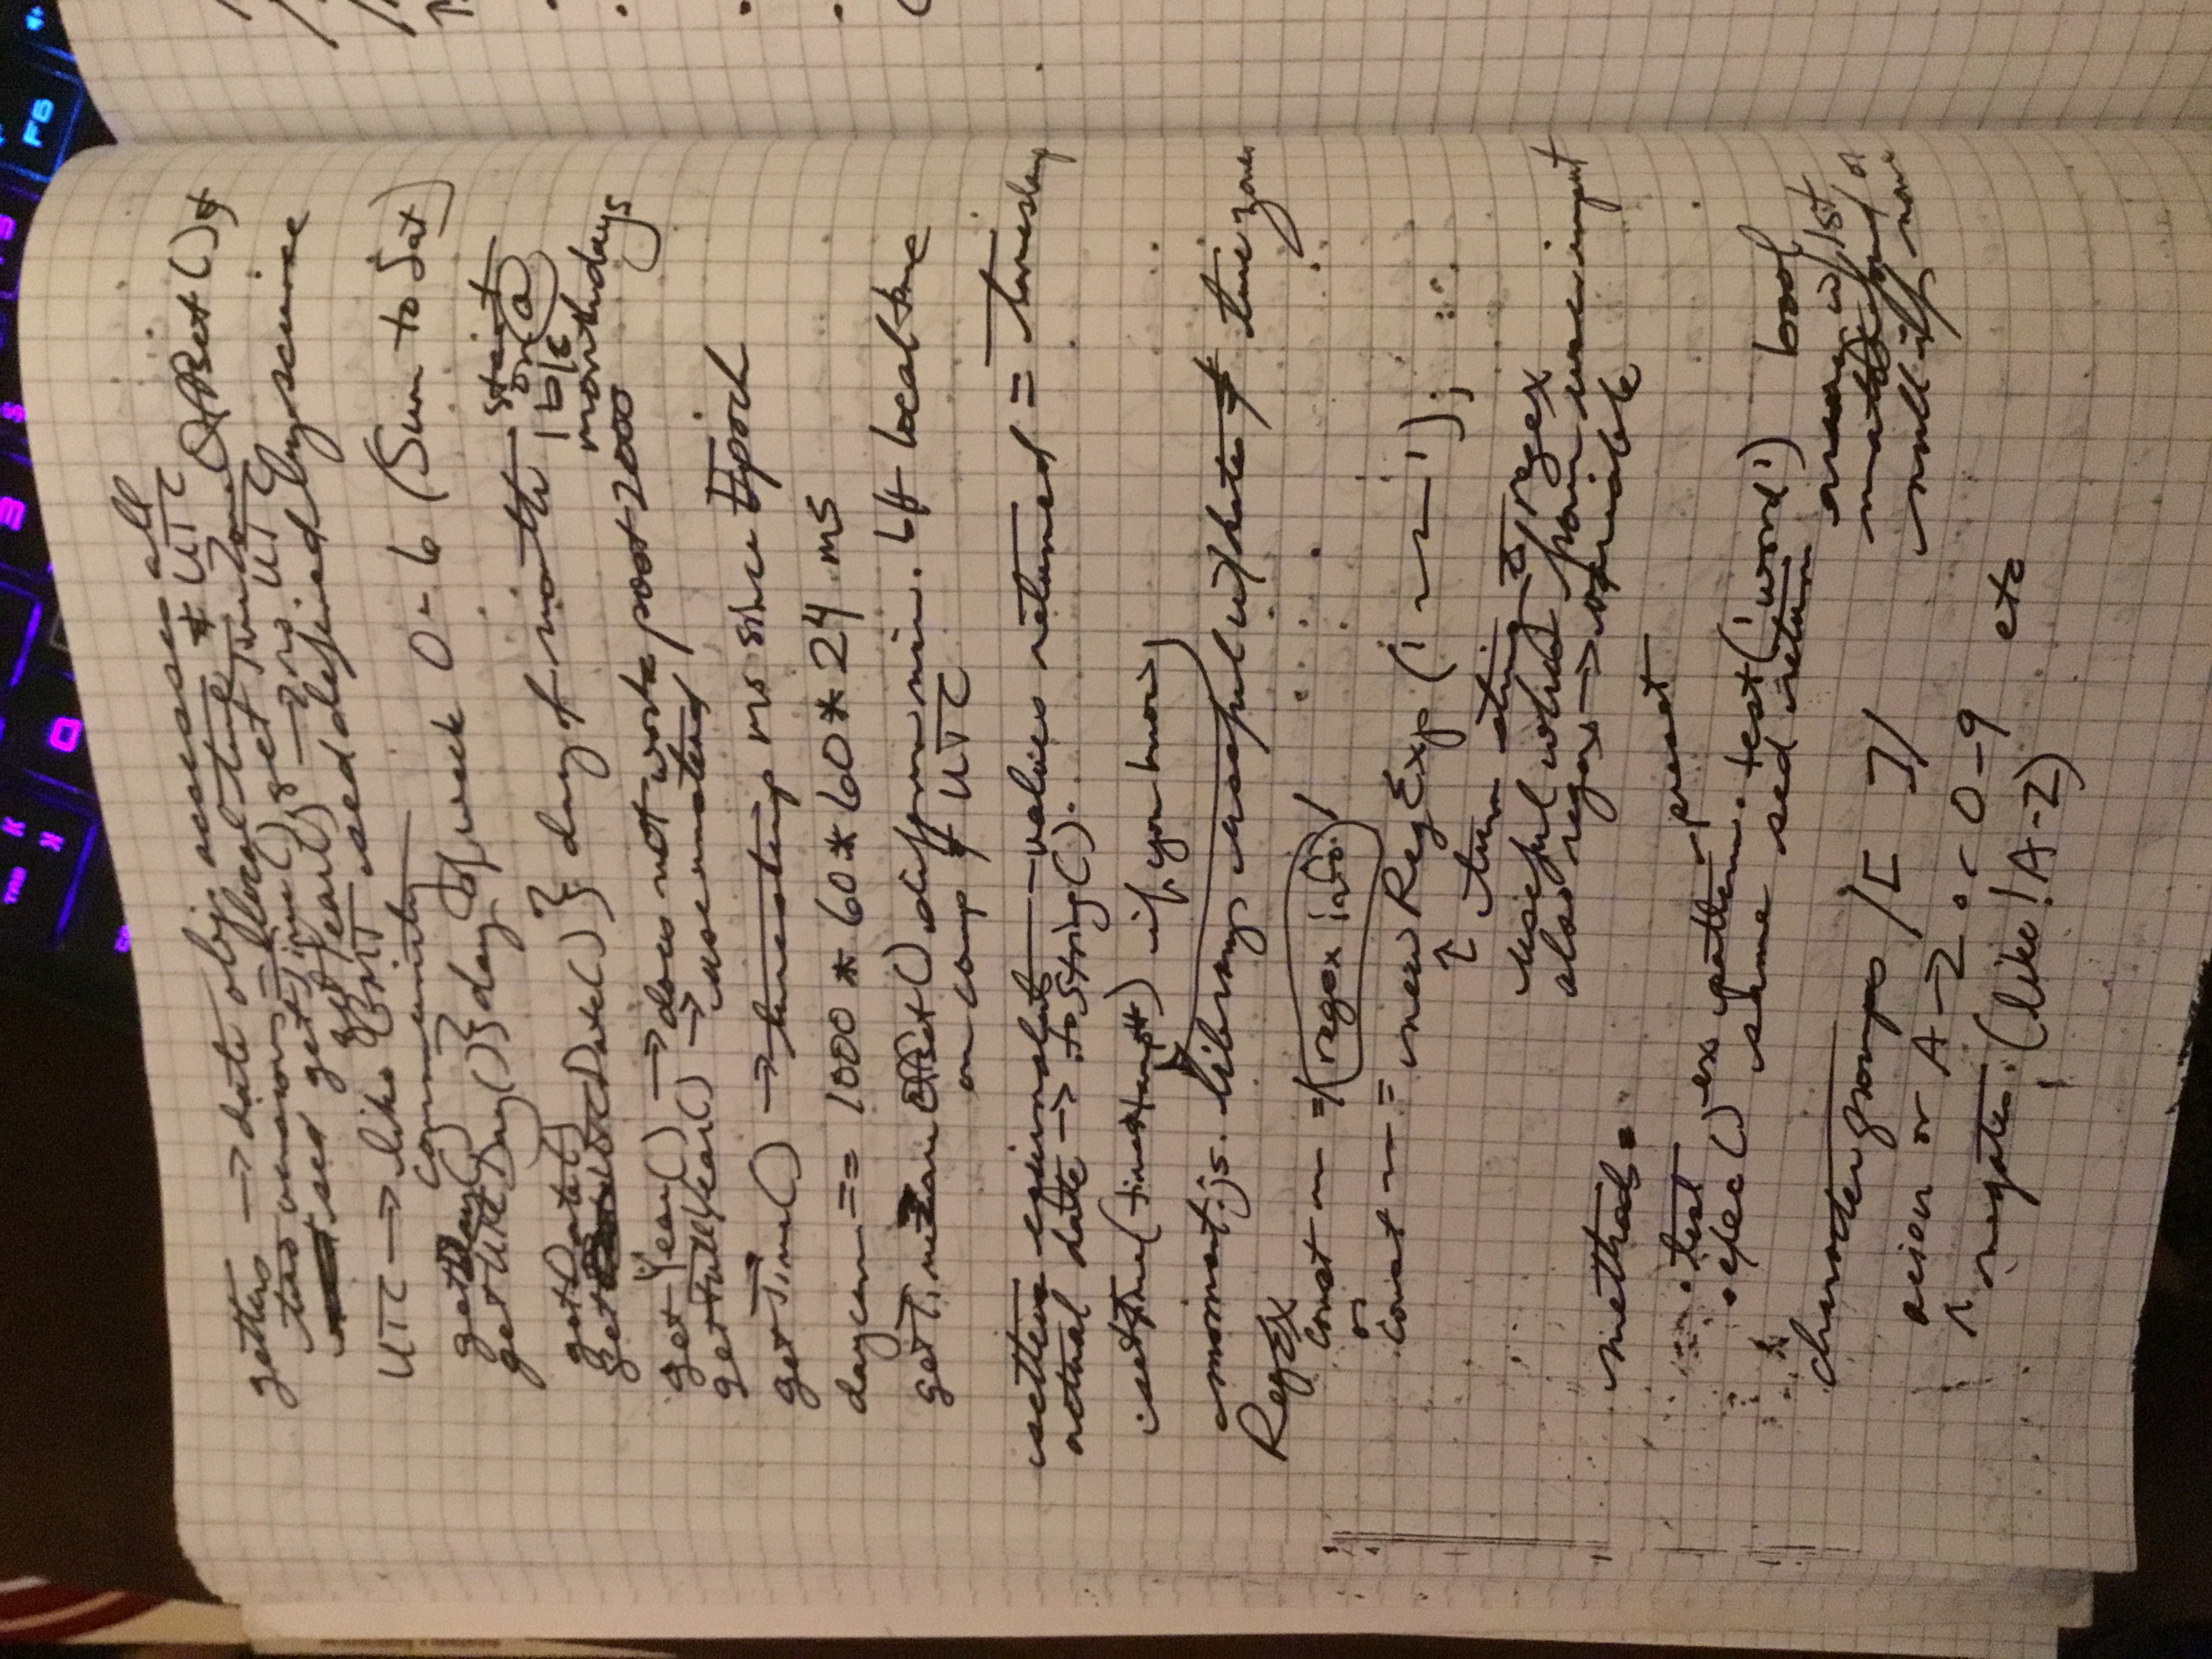 TAB
F6
getters → date obj. accesses all
two versions = local time & UTC
sed getTime(), getTimeZoneOffset() &
getYear() → no UTC
UTC → like GMT sed defined by science
community
getDay()
getUTCDay() } day of week 0-6 (Sun to Sat)
getDate()
getUTCDate() } day of month start
on @
1 b/c
monthdays
getYear() → does not work post 2000
getFullYear() → use instead
getTime() → timestamp ms since Epoch
== 1000 * 60 * 60 * 24 ms
getTimeZoneOffset() diff in min. b/t local time
on comp & UTC
setters equivalents - values returned = timestamp
actual date → .toString().
.setTime(timestamp#) if you know
moment.js. library useful w/ dates & time zones
RegEx
const ~ = /regex info/
or
const ~ = new RegExp('~~');
↑ turn string to regex
useful when from user input
also regex → variable
methods =
preset
.test ex pattern.test('word') bool
.exec() same sed return array w/ 1st
match found or
null if none
character groups /[ ]/
or A-Z or 0-9 etc
^ negates. (like !A-Z)